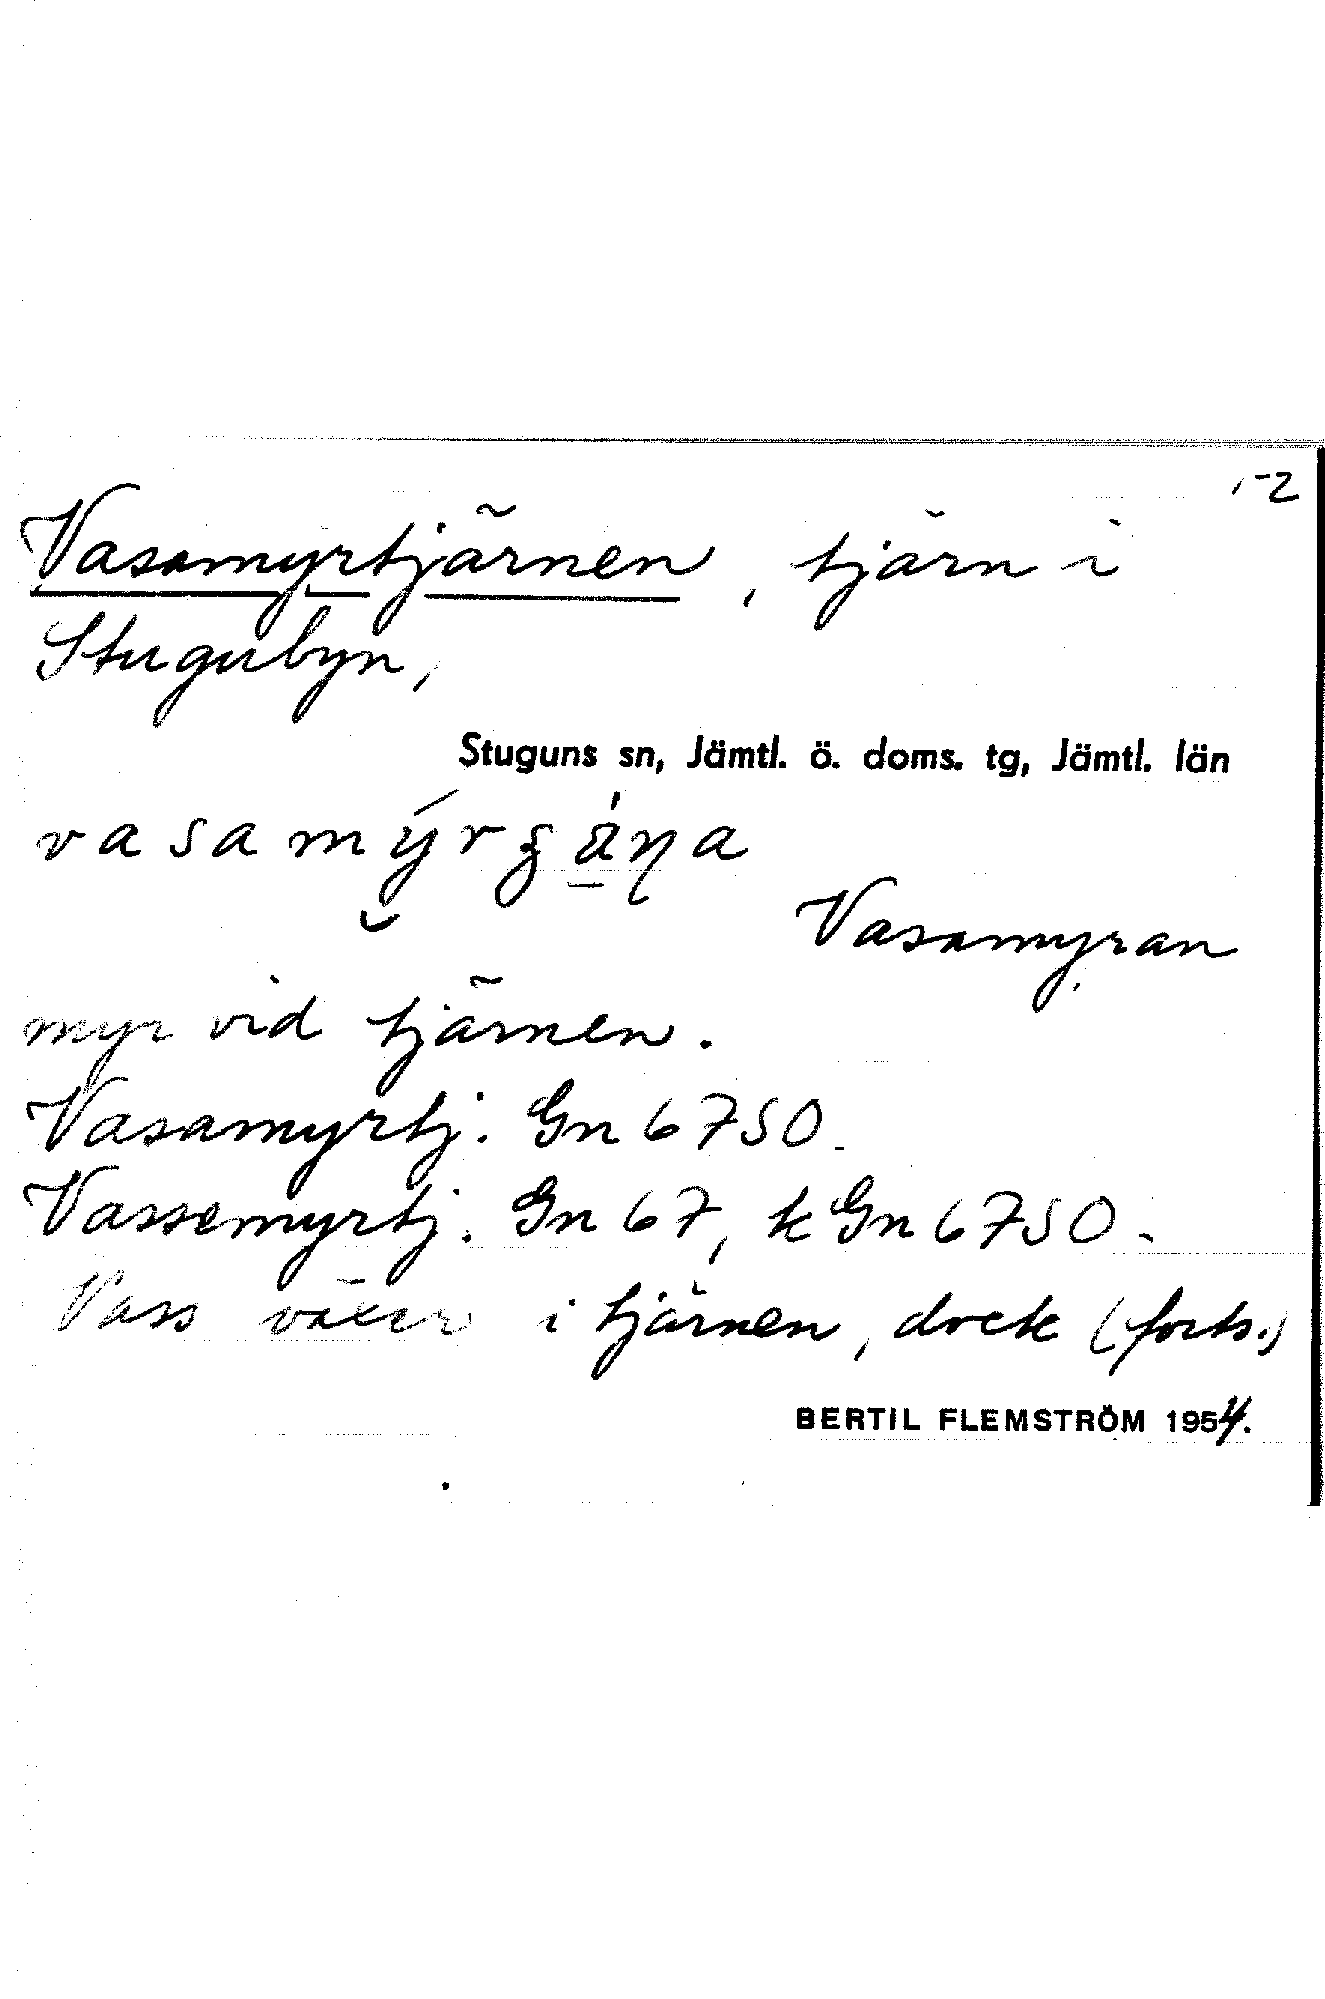 1-2
Vasamyrtjärnen, tjärn i
Stugubyn,
Stuguns sn, Jämtl. ö. doms. tg, Jämtl. län
Vasamyran
myr vid tjärnen.
Vasamyrtj. Gn 67SO.
Vassemyrtj. Gn 67, kGn 67SO.
Vass växer i tjärnen, dock (forts.)
BERTIL FLEMSTRÖM 1954.